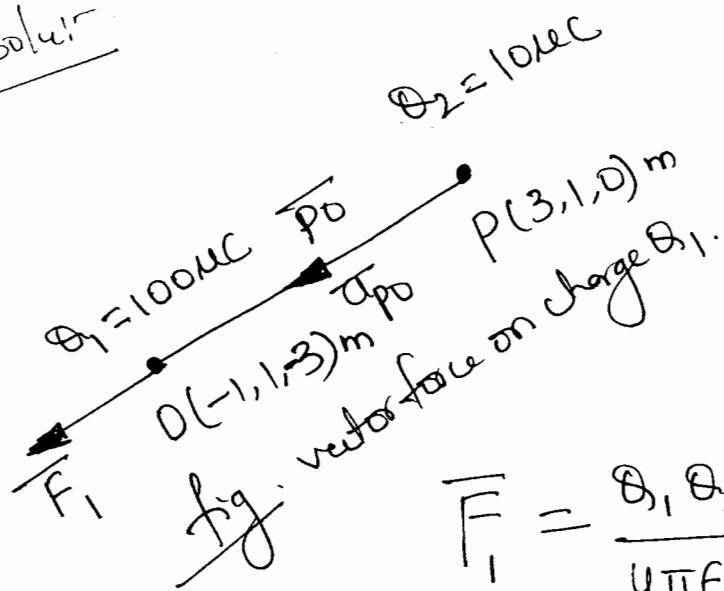 Solu:-
Q2 = 10μC
P(3,1,0)m
PO
aPO
Q1 = 100μC
O(-1,1,-3)m
F1
fig. vector force on charge Q1.
F1 = Q1 Q
4π